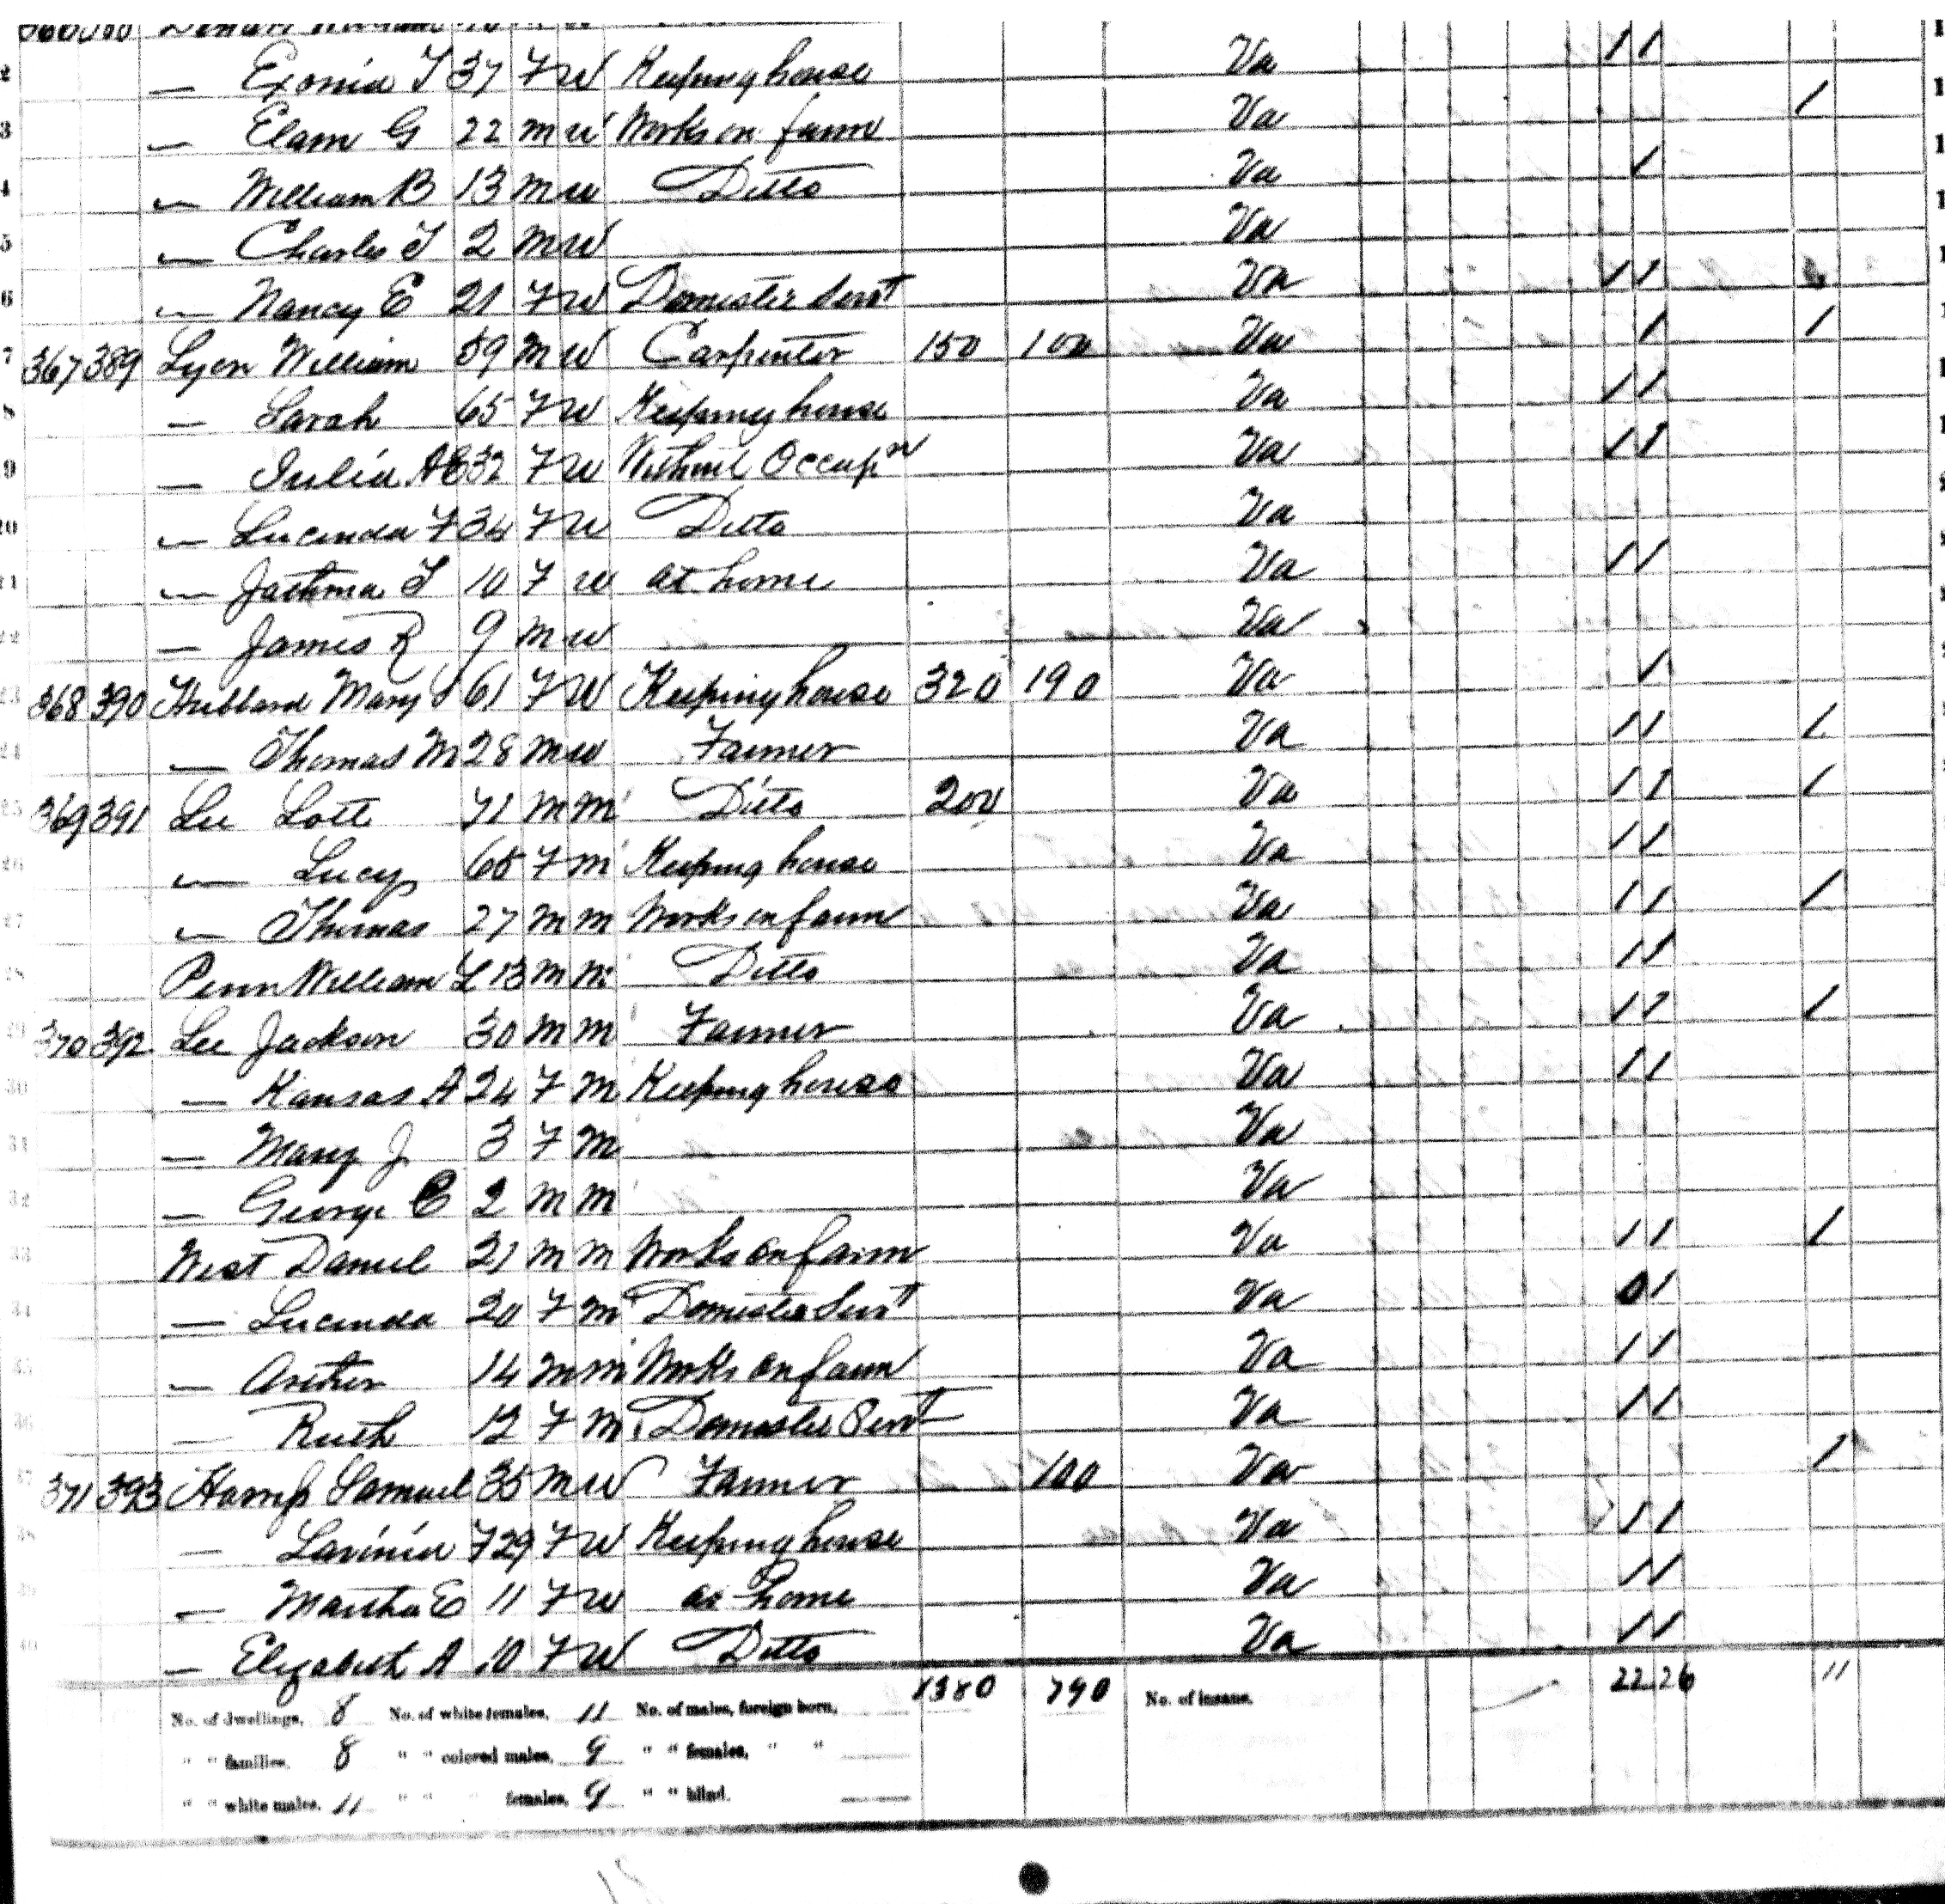 2 — Exonia T 37 F W Keeping house Va 1 1
3 — Elam G 22 M W Works on farm Va 1
4 — William B 13 M W Ditto Va 1
5 — Charles T 2 M W Va
6 — Nancy E 21 F W Domestic Servt Va 1 1
7 367 389 Lyon William 59 M W Carpenter 150 100 Va 1 1
8 — Sarah 65 F W Keeping house Va 1 1
9 — Julia A E 32 F W Without Occupn Va 1 1
20 — Lucinda F 34 F W Ditto Va
21 — T 10 F W at home Va 1 1
22 — James R 9 M W Va
23 368 390 Hubbard Mary 61 F W Keeping house 320 190 Va 1
24 — Thomas M 28 M W Farmer Va 1 1 1
25 369 391 Lee Lott 71 M M Ditto 200 Va 1 1 1
26 — Lucy 68 F M Keeping house Va 1 1
27 — Thomas 27 M M Works on farm Va 1 1 1
28 Penn William L 13 M M Ditto Va 1 1
29 370 392 Lee Jackson 30 M M Farmer Va 1 1 1
30 — Kansas A 24 F M Keeping house Va 1 1
31 — Mary J 3 F M Va
32 — George C 2 M M Va
33 West Daniel 21 M M Works on farm Va 1 1 1
34 — Lucinda 20 F M Domestic Servt Va 1
35 — Arther 14 M M Works on farm Va 1 1
36 — Ruth 12 F M Domestic Servt Va 1 1
37 371 393 Samuel 35 M W Farmer 100 Va 1
38 — Lavinia F 29 F W Keeping house Va 1 1
39 — Martha E 11 F W at home Va 1 1
40 — Elizabeth A 10 F W Ditto Va 1 1
1380 790 22 26 11
No. of dwellings, 8 No. of white females, 11 No. of males, foreign born, No. of insane,
" " families, 8 " " colored males, 9 " " females, " "
" " white males, 11 " " " females, 9 " " blind,